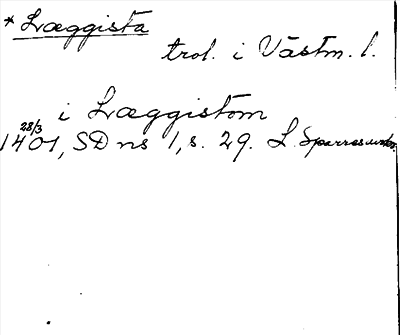 * Læggista
trol. i Västm. l.
i Læggistom
28/3
1401, SD ns 1, s. 29. L. Sparres